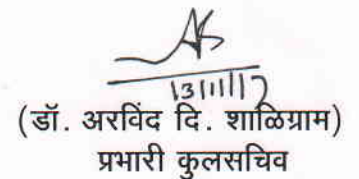 13/11/17
(डॉ. अरविंद दि. शाळिग्राम)
प्रभारी कुलसचिव